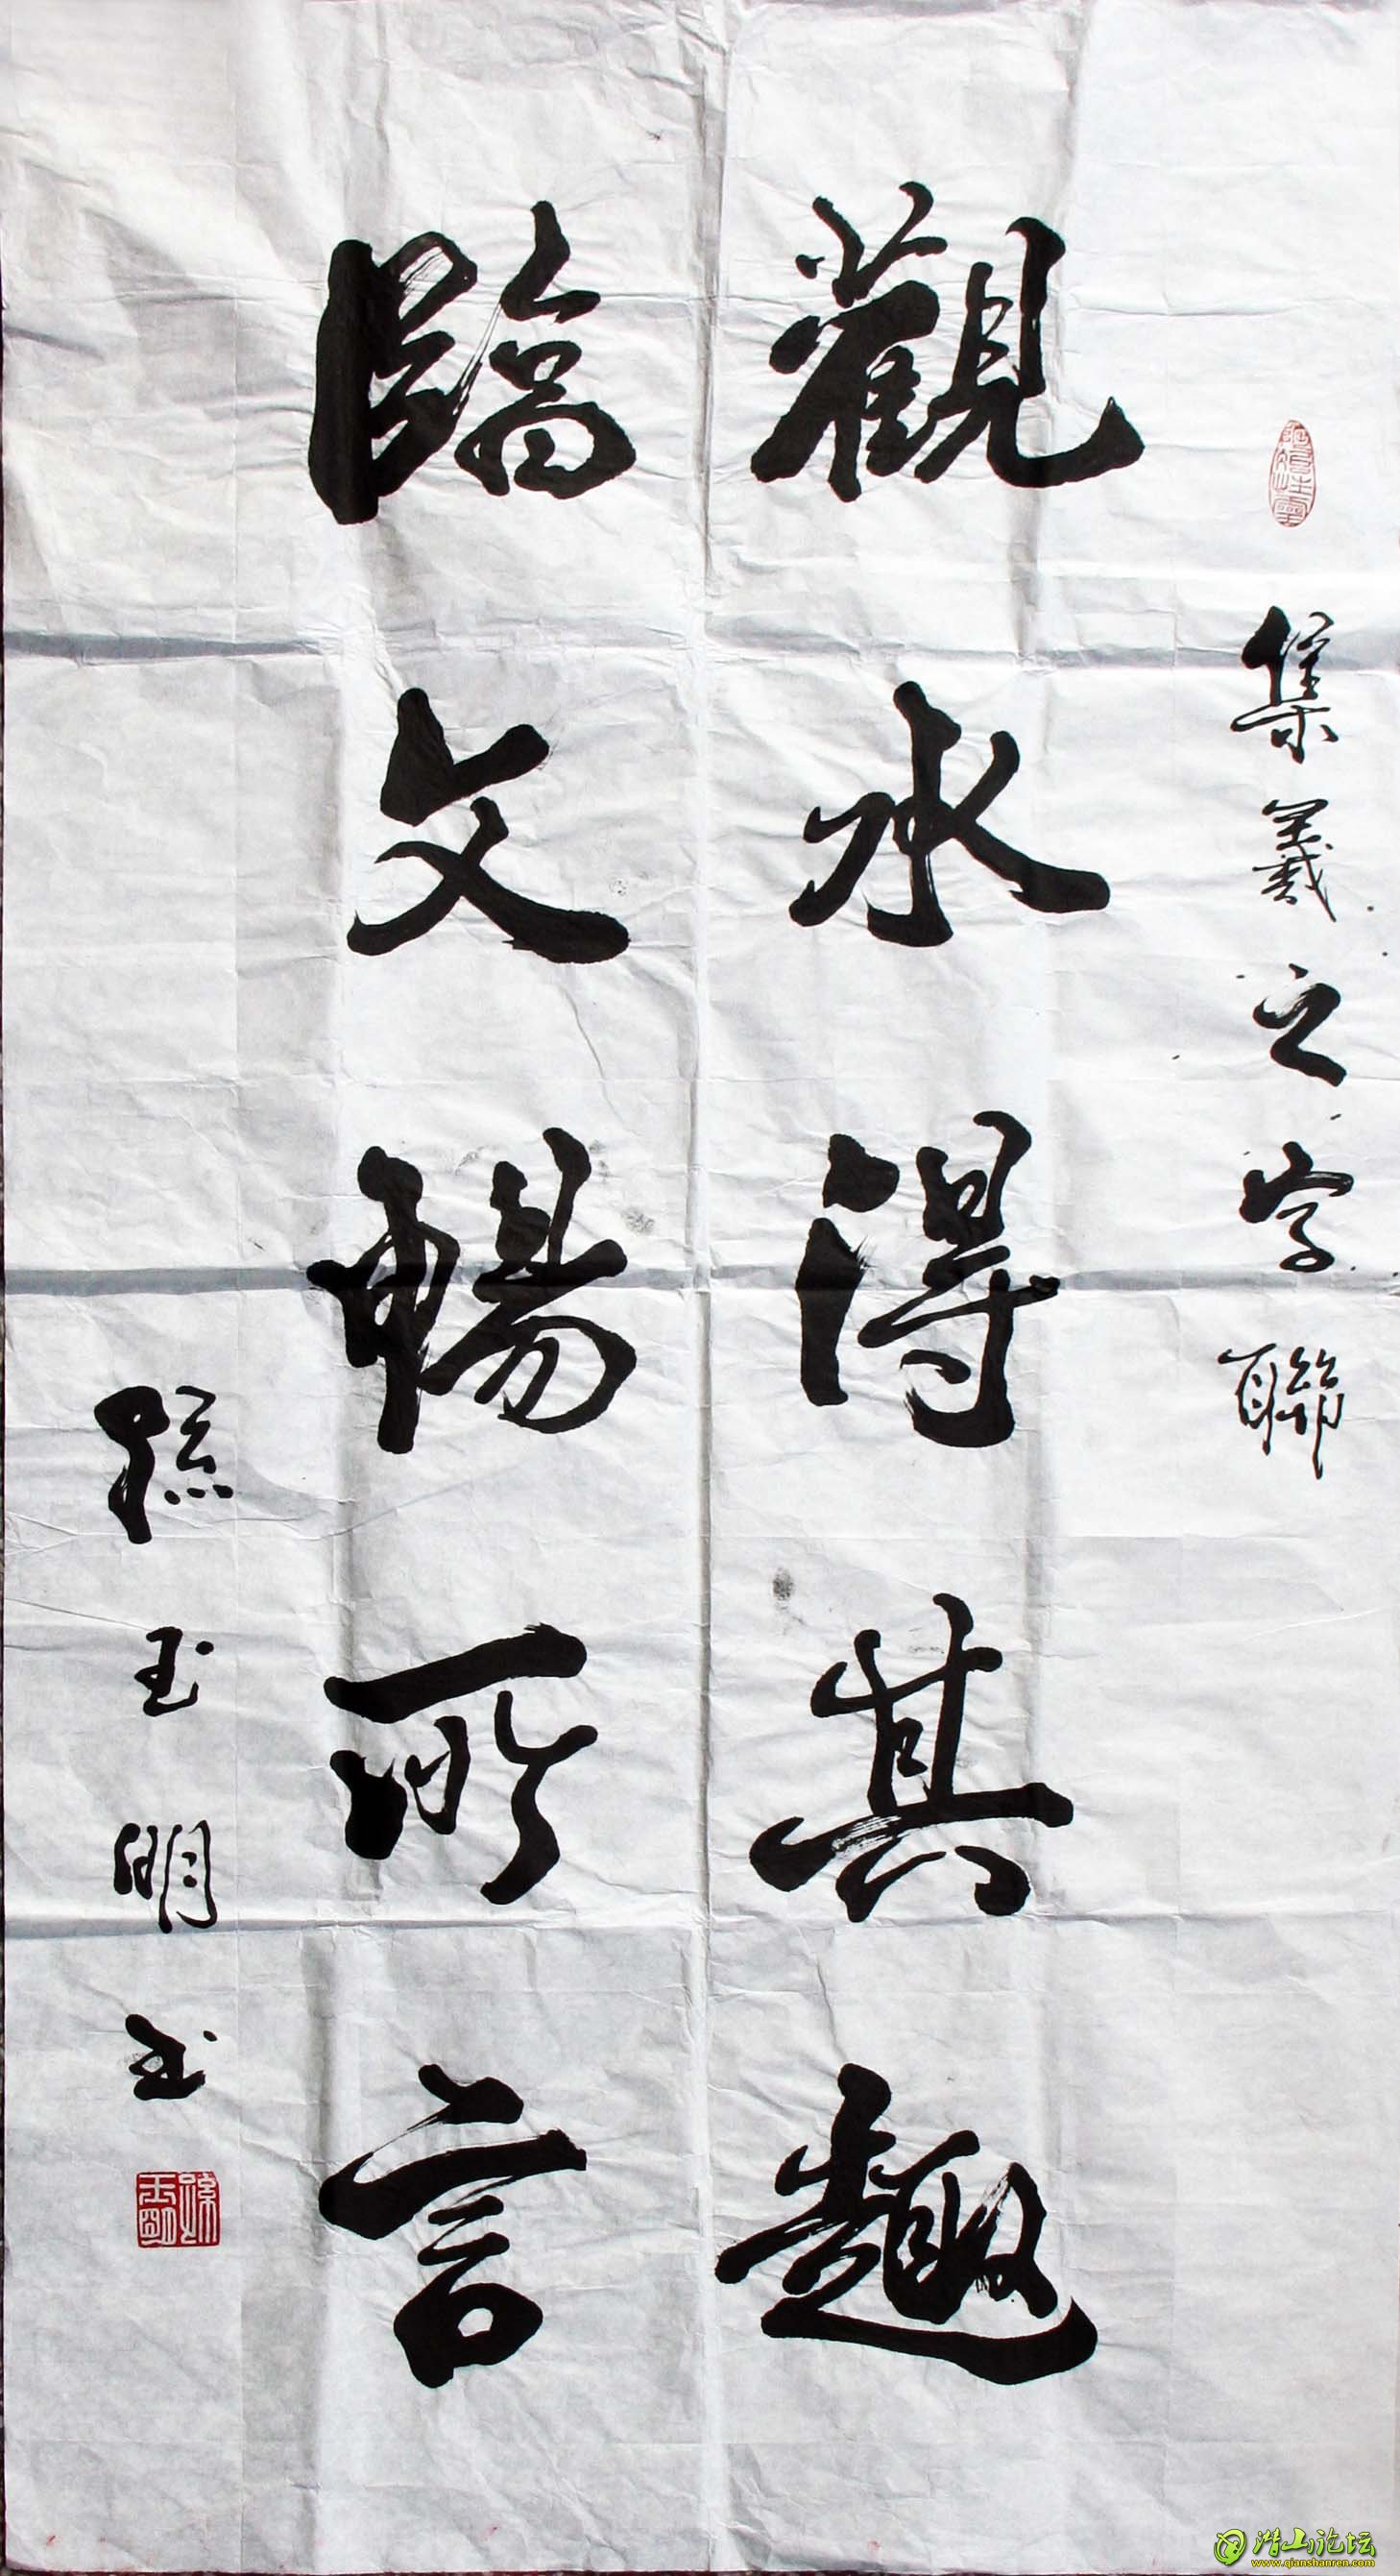 集羲之字聯
觀水得其趣
臨文暢所言
孫玉明书
孫玉明
潜山论坛
www.qianshanren.com